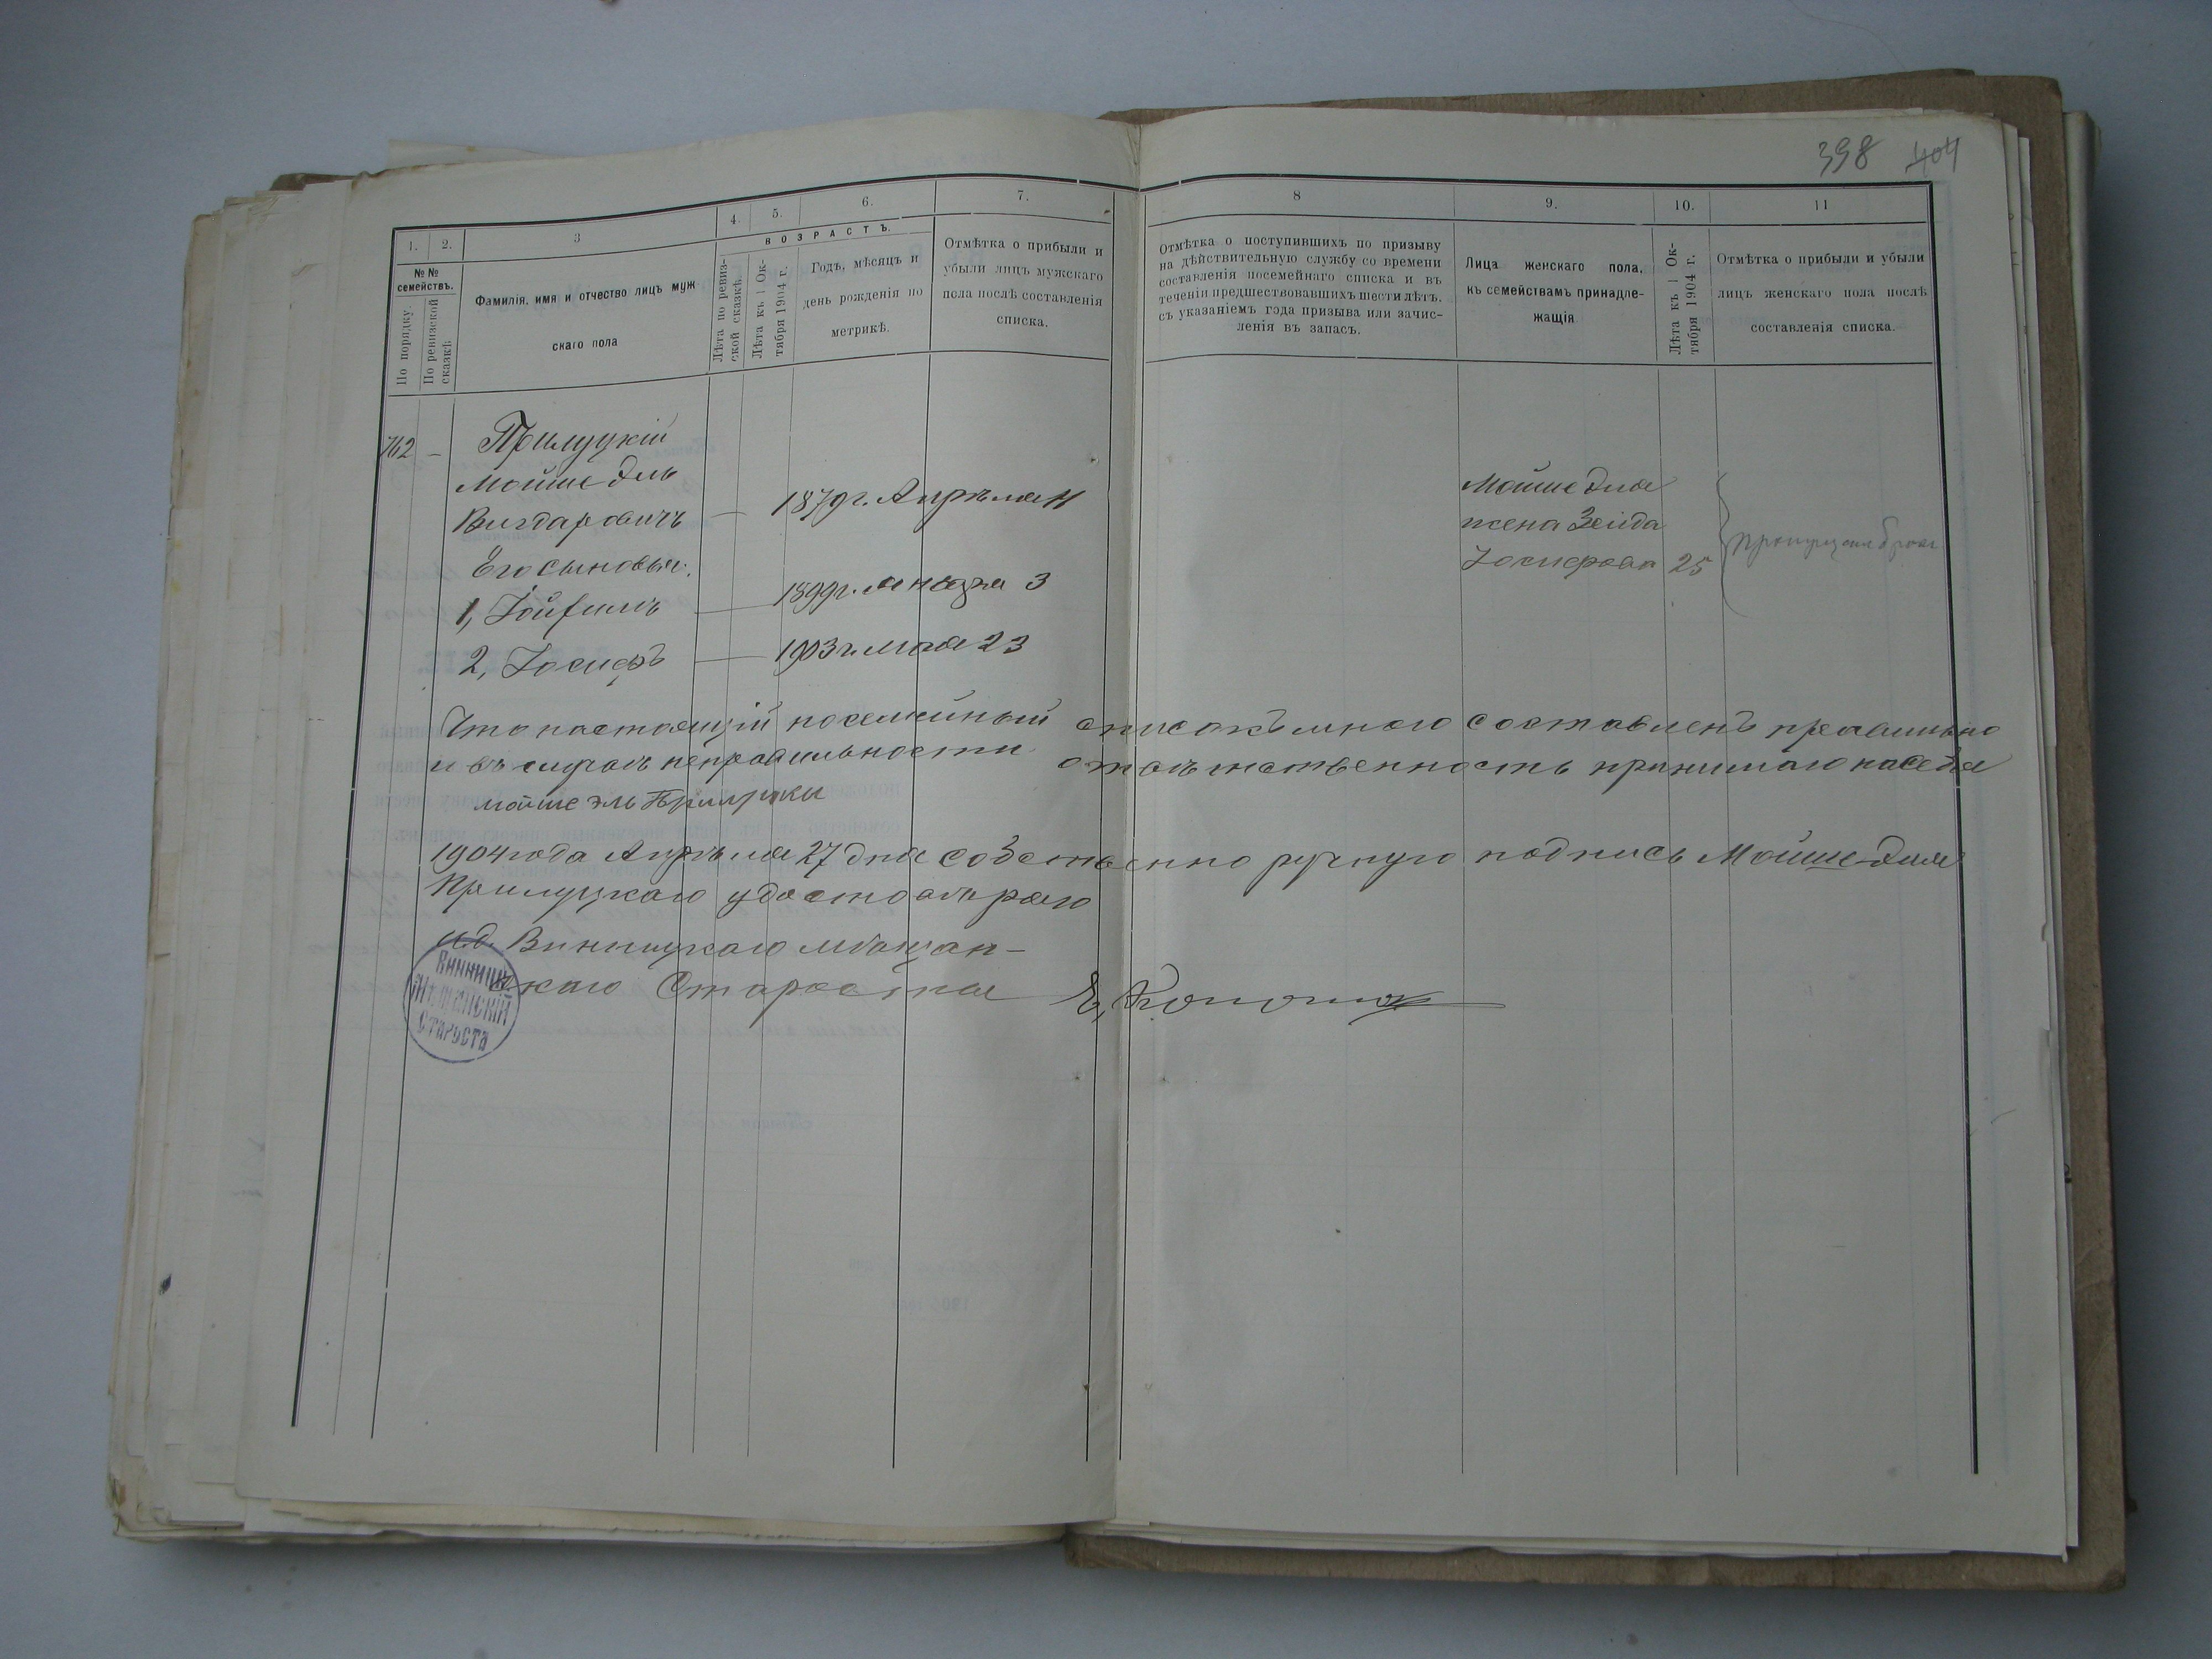 398 404
1. 2. 3 4. 5. 6. 7.
№ № семействъ.
По порядку.
По ревизской сказкѣ.
Фамилія, имя и отчество лицъ муж
скаго пола
ВОЗРАСТЪ.
Лѣта по ревиз-
ской сказкѣ.
Лѣта къ 1 Ок-
тября 1904 г.
Годъ, мѣсяцъ и
день рожденія по
метрикѣ.
Отмѣтка о прибыли и
убыли лицъ мужскаго
пола послѣ составленія
списка.
8 9. 10. 11
Отмѣтка о поступившихъ по призыву
на дѣйствительную службу со времени
составленія посемейнаго списка и въ
теченіи предшествовавшихъ шести лѣтъ.
съ указаніемъ года призыва или зачис-
ленія въ запасъ.
Лица женскаго пола,
къ семействамъ принадле-
жащія
Лѣта къ 1 Ок-
тября 1904 г.
Отмѣтка о прибыли и убыли
лицъ женскаго пола послѣ
составленія списка.
762 — Прилуцкій
Мойше Эль
Вигдаровичъ — 1879 г. Апрѣля 11
Его сыновья:
1, — 1899 г. января 3
2, Іосифъ — 1903 г. мая 23
Мойше Эля
жена Зейда
Іосифова 25
Что настоящій посемейный списокъ мною составленъ правильно
и въ случаѣ неправильности отвѣтственность принимаю на себя
мойше эль Прилуцки
1904 года Апрѣля 27 дня собственно ручную подпись Мойше-Эля
Прилуцкаго удостовѣряю
И.д. Винницкаго мѣщан-
скаго Старосты
Винницк.
Мѣщанскій
Староста